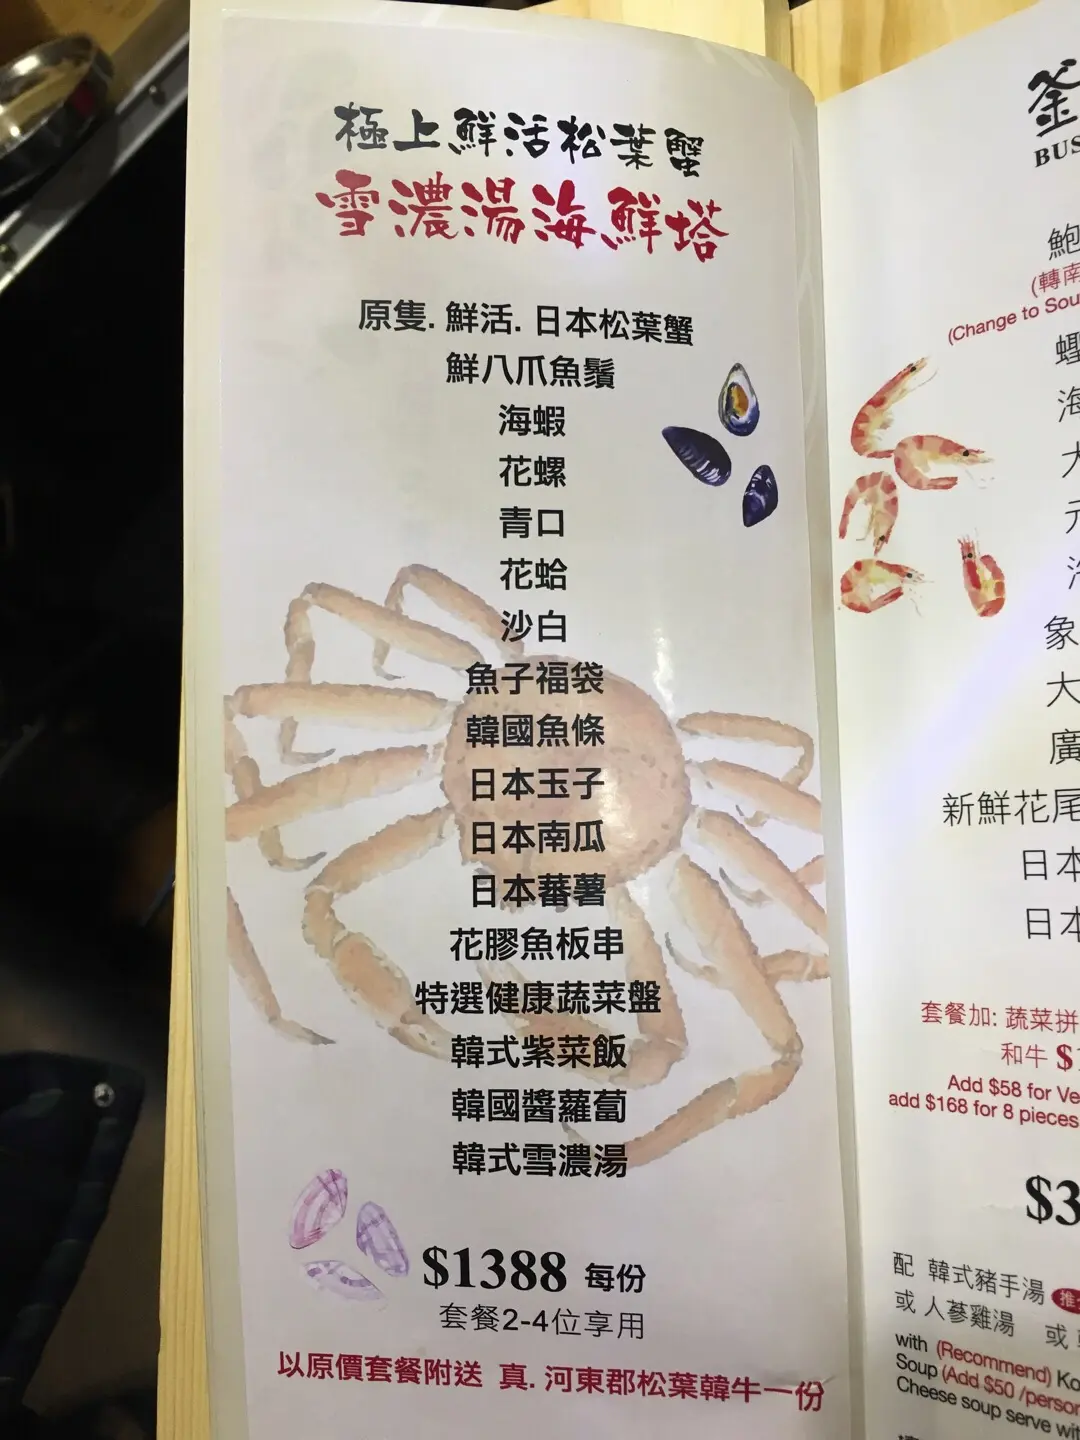 極上鮮活松葉蟹
雪濃湯海鮮塔
原隻. 鮮活. 日本松葉蟹
鮮八爪魚鬚
海蝦
花螺
青口
花蛤
沙白
魚子福袋
韓國魚條
日本玉子
日本南瓜
日本蕃薯
花膠魚板串
特選健康蔬菜盤
韓式紫菜飯
韓國醬蘿蔔
韓式雪濃湯
$1388 每份
套餐2-4位享用
以原價套餐附送 真. 河東郡松葉韓牛一份
釜
BUS
鮑
(轉南
(Change to Sou
海
大
象
大
廣
新鮮花尾
日本
日本
套餐加: 蔬菜拼
和牛 $
Add $58 for Ve
add $168 for 8 pieces
$3
配 韓式豬手湯 推
或 人蔘雞湯 或
with (Recommend) Ko
Soup (Add $50 /person
Cheese soup serve wit